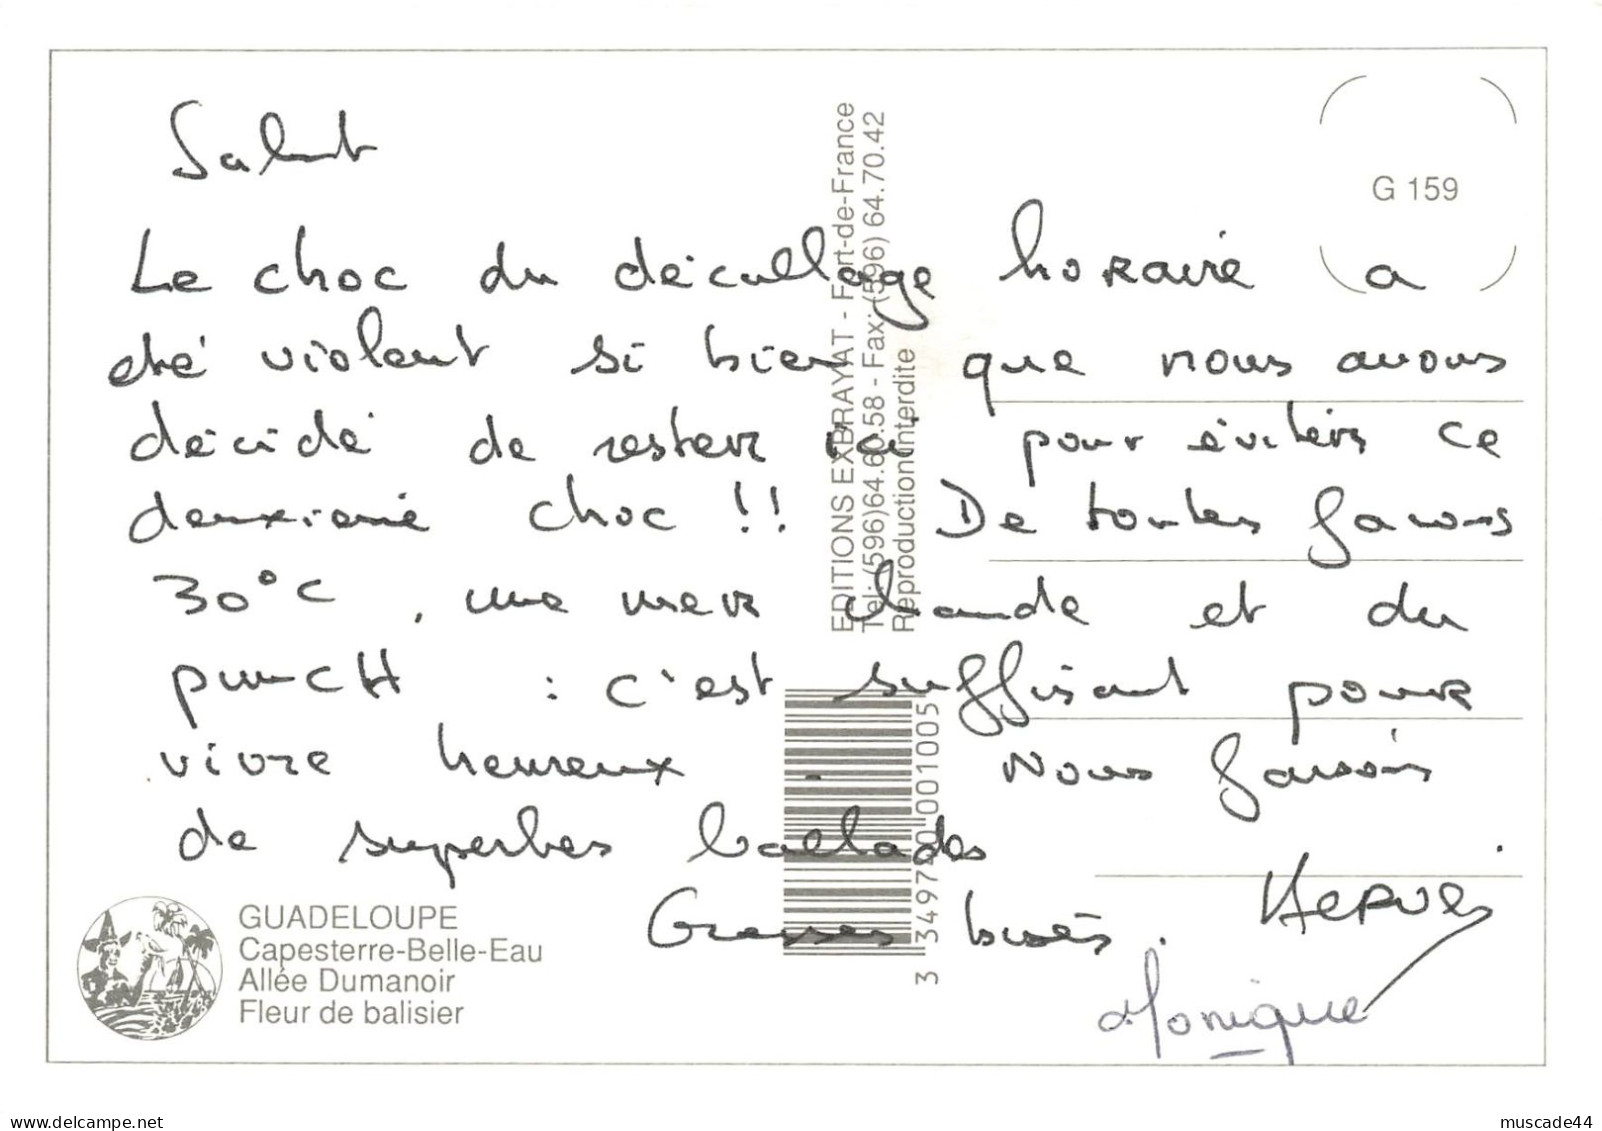 Salut
Le choc du décallage horaire a
été violent si bien que nous avons
décidé de rester ici pour éviter ce
deuxième choc !! De toutes façons
30°C , une mer chaude et du
puncH : c'est suffisant pour
vivre heureux . Nous faisons
de superbes ballades .
Grosses bises . HERVé
Monique
G 159
EDITIONS EXBRAYAT - Fort-de-France
Tel: (596)64.60.58 - Fax: (596) 64.70.42
Reproduction interdite
GUADELOUPE
Capesterre-Belle-Eau
Allée Dumanoir
Fleur de balisier
delcampe.net
muscade44